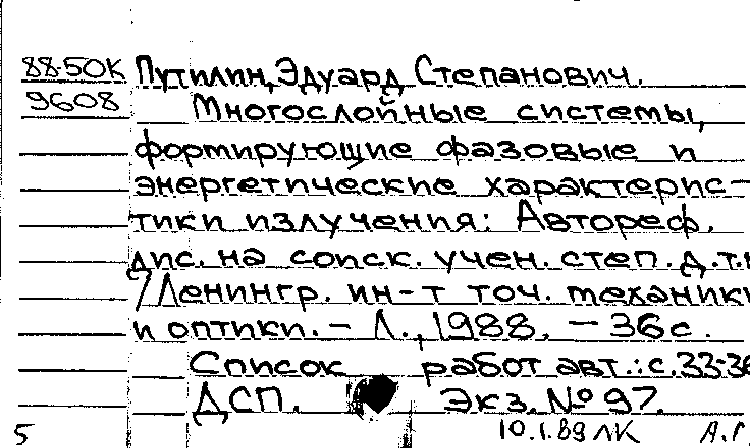 88-50К Путилин, Эдуард Степанович.
9608 Многослойные системы,
формирующие фазовые и
энергетические характерис-
тики излучения: Автореф.
дис. на соиск. учен. степ. д.т.н
/Ленингр. ин-т точ. механики
и оптики. - Л., 1988. - 36 с.
Список работ авт.: с. 33-36
ДСП. Экз. № 97.
5 10.1.89 ЛК А.Г